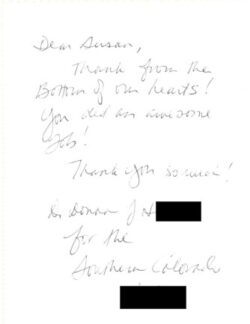 Dear Susan,
Thank from the
Bottom of our hearts!
You did an awesome
Job!
Thank you so much!
Donna J
for the
Southern Colorado